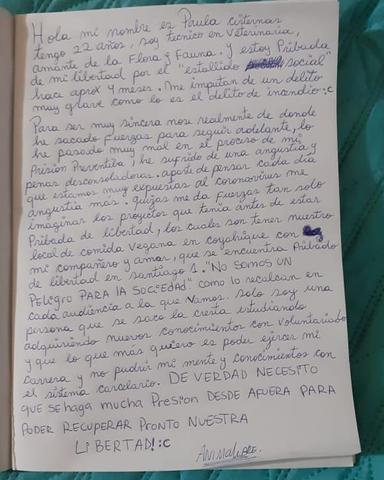 Hola mi nombre es Paula cisternas
tengo 22 años, soy tecnico en veterinaria,
amante de la Flora y Fauna. y estoy Pribada
de mi libertad por el "estallido social"
hace aprox 4 meses. me imputan de un delito
muy grave como lo es el delito de incendio :c
Para ser muy sincera nose realmente de donde
he sacado Fuerzas para seguir adelante, lo
he pasado muy mal en el proceso de mi
Prision Preventiva y he sufrido de una angustia y
penas desconsoladoras. aparte de pensar cada dia
que estamos muy expuestas al coronavirus me
angustia mas. Quizas me da Fuerzas tan solo
imaginar los proyectos que tenia antes de estar
Pribada de libertad, los cuales son tener nuestro
local de comida vegana en coyahique con
mi compañero y amor, que se encuentra Pribado
de libertad en santiago 1. "NO SOMOS UN
PELIGRO PARA LA SOCIEDAD" como lo recalcan en
cada audiencia a la que vamos. solo soy una
persona que se saco la cresta estudiando
adquiriendo nuevos conocimientos con voluntariados
y que lo que más quiero es poder ejercer mi
carrera y no pudrir mi mente y conocimientos con
el sistema carcelario. DE VERDAD NECESITO
QUE SE haga mucha Presion DESDE AFUERA PARA
PODER RECUPERAR PRONTO NUESTRA
LIBERTAD! :C